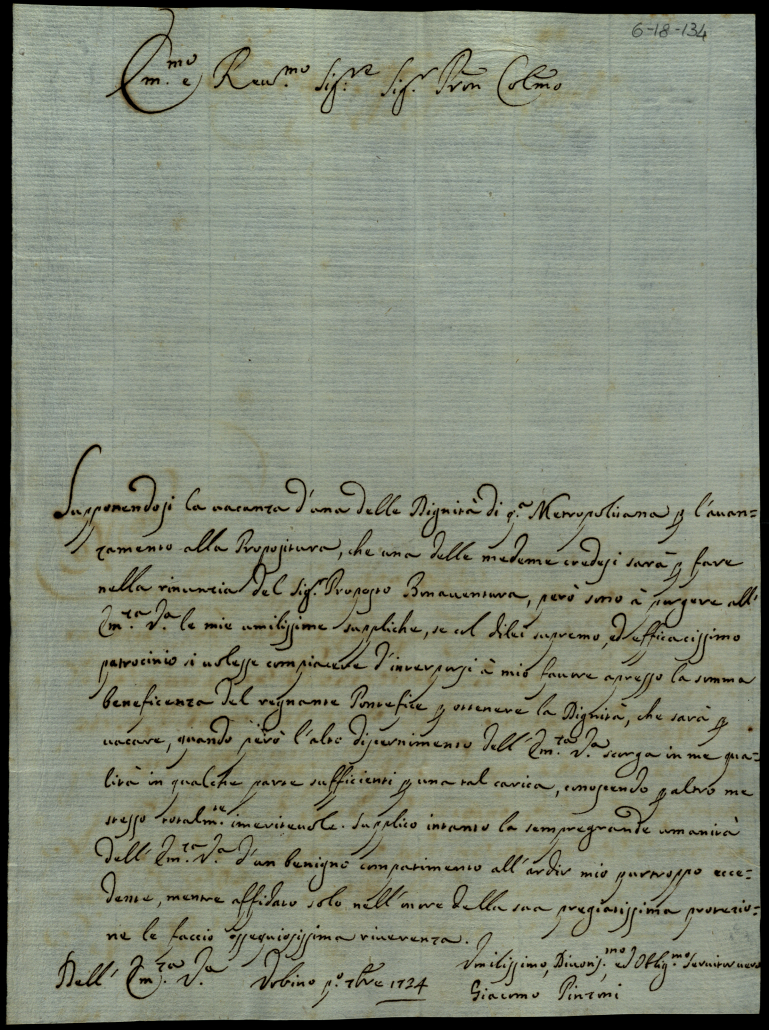 6-18-134
Em.mo e Reu.mo Sig.re Sig.r Pron Colmo
Supponendosi la uacanza d'una delle Dignità di q.a Metropolitana p l'auan=
zamento alla Propositura, che una delle medeme credesi sarà p fare
nella rinunzia del Sig.r Proposto Bonauentura, però sono à purgere all'
Em.za V.a le mie umilissime suppliche, se col dilei supremo, ed efficacissimo
patrocinio si uolesse compiacere d'interporsi à mio fauore apresso la somma
beneficenza del regnante Pontefice p ottenere la Dignità, che sarà p
uacare, quando però l'alto discernimento dell'Em.za V.a scorga in me qua=
lità in qualche parte sufficienti p una tal carica, conoscendo p altro me
stesso totalm.te imeriteuole. Supplico intanto la sempregrande umanità
dell'Em.za V.a d'un benigno compatimento all'ardir mio purtroppo ecce=
dente, mentre affidato solo nell'onore della sua pregiatissima protezio=
ne le faccio ossequiosissima riuerenza.
Dell'Em.za V.a Vrbino p.o 7bre 1724
Vmilissimo, Diuotis.mo ed Oblig.mo Seruitor uero
Giacomo Pinzoni